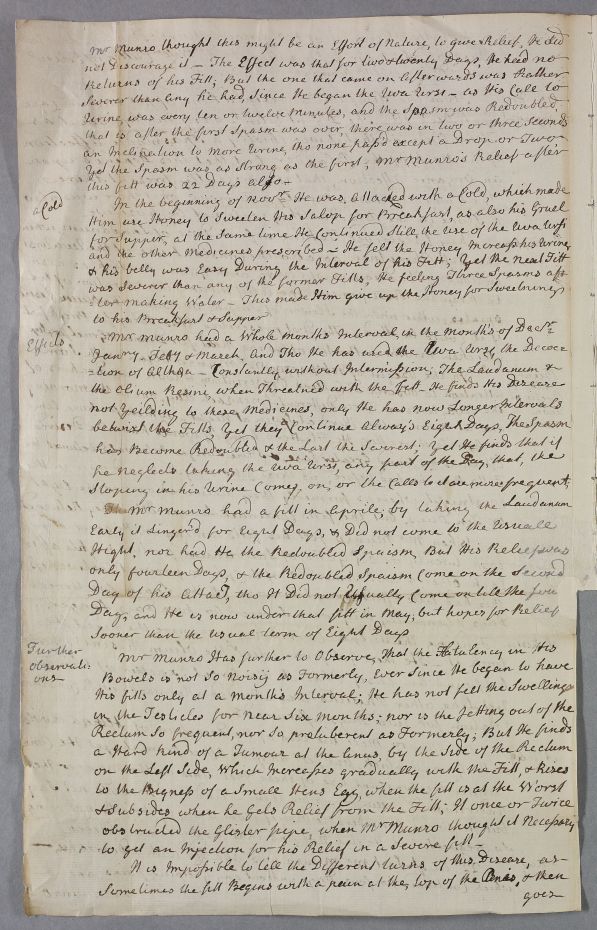 Mr Munro thought this might be an Effort of Nature, to give Relief, He did
not Discourage it – The Effect was that for two & twenty Days, He had no
Returns of his Fitt; But the one that came on afterwards was Rather
Severer than any he had, Since He began the Uva Ursi – as His Calls to
Urine, was every ten or twelve Minutes, and the Spasm was Redoubled,
that is after the first Spasm was over, there was in two or three Seconds
an Inclination to more Urine, tho none pass'd except a Drop or Two
Yet the Spasm was as Strong as the first, Mr Munro's Relief after
this fitt was 22 Days also –
a Cold
In the beginning of Novr. He was attacked with a Cold, which made
Him use Honey to Sweeten His Salop for Breakfast, as also his Gruel
for Supper, at the Same time He Continued Still, the Use of the Uva Ursi
and the other Medicines prescribed – He felt the Honey Increass his Urine,
& his belly was Easy During the Interval of his Fitt; Yet the next Fitt
was Severer than any of the former Fitts, He feeling Three Spasms aff-
=ter making Water – This made Him give up the Honey for Sweetning
to his Breakfast & Supper
Effects
Mr Munro had a Whole months Interval, in the Months of Decr.
Janry. Febry & March, and Tho He has used the Uva Ursi, the Decoc-
=tion of Althea – Constantly, without Intermission; The Laudanum &
the Oleum Resini, when Threatned with the fitt – He finds His Disease
not Yeilding to these Medicines, only He has now Longer Intervals
betwixt the Fitts, Yet they Continue always Eight Days, The Spasm
has Become Redoubled & the Last the Severest; Yet He finds that if
he neglects taking the Uva Ursi, any part of the Day, that, the
Stoping in his Urine Comes on, or the Calls to it are more frequent,
Mr Munro had a fitt in Aprile, by taking the Laudanum
Early it Linger'd for Eight Days, & Did not come to the Usuall
Hight, nor had He the Redoubled Spaism, But His Relief was
only fourteen Days, & the Redoubled Spaism Come on the Second
Day of his attact, tho It Did not Usually Come on till the
Day, and He is now under that fitt in May, but hopes for Relief
Sooner than the usual term of Eight Days
Further
Observati-
ons
Mr Munro Has further to Observe, that the Flatulency in His
Bowels is not So Noisy as Formerly, Ever Since He began to have
His fitts only at a Months Interval; He has not felt the Swellings
in the Testicles for near Six months; nor is the Jetting out of the
Rectum So frequent, nor So protuberent as Formerly; But He finds
a Hard Kind of a Tumour at the anus, by the Side of the Rectum
on the Left Side, Which Increasses gradually with the Fitt, & Rises
to the Bigness of a Small Hens Egg, when the fitt is at the Worst
& Subsides when he Gets Relief from the Fitt; It once or Twice
obstructed the Glister pipe, when Mr Munro thought it Necessary
to get an Injection for his Relief in a Severe fitt –
It is Impossible to tell the Different turns of this Disease, as
Sometimes the fitt Begins with a pain at the top of the Penis, & then
goes